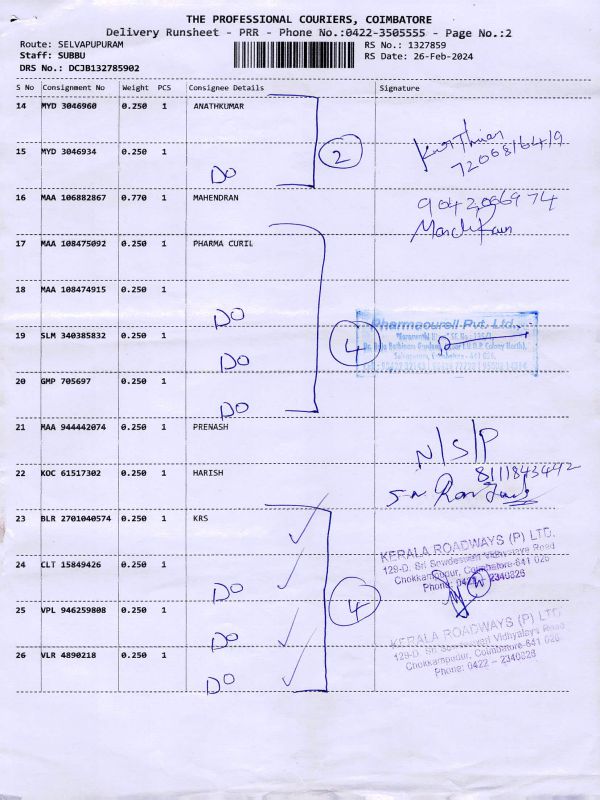 THE PROFESSIONAL COURIERS, COIMBATORE
Delivery Runsheet - PRR - Phone No.:0422-3505555 - Page No.:2
Route: SELVAPUPURAM
RS No.: 1327859
Staff: SUBBU
RS Date: 26-Feb-2024
DRS No.: DCJB132785902
S No Consignment No Weight PCS Consignee Details Signature
14 MYD 3046960 0.250 1 ANATHKUMAR
15 MYD 3046934 0.250 1
DO
2
16 MAA 106882867 0.770 1 MAHENDRAN
17 MAA 108475092 0.250 1 PHARMA CURIL
18 MAA 108474915 0.250 1
DO
19 SLM 340385832 0.250 1
DO
4
Pharmacurell Pvt. Ltd.,
20 GMP 705697 0.250 1
DO
21 MAA 944442074 0.250 1 PRENASH
N/S/P
22 KOC 61517302 0.250 1 HARISH
8111843492
23 BLR 2701040574 0.250 1 KRS
KERALA ROADWAYS (P) LTD.
24 CLT 15849426 0.250 1
DO
Chokkampudur, Coimbatore-641 026
Phone: 0422 - 2340826
25 VPL 946259808 0.250 1
DO
4
KERALA ROADWAYS (P) LTD.
26 VLR 4890218 0.250 1
DO
Phone: 0422 - 2340826